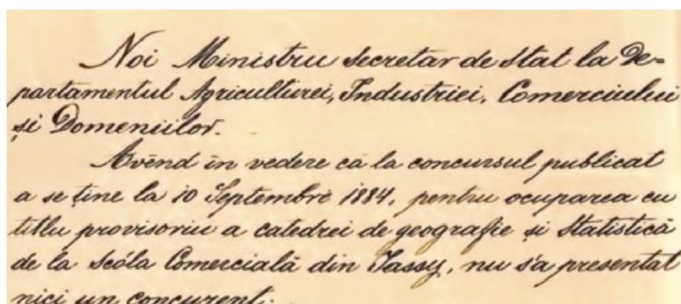 Noi Ministru Secretar de Stat la De-
partamentul Agriculturei, Industriei, Comerciului
și Domeniilor.
Avênd în vedere că la concursul publicat
a se ține la 10 Septembre 1884, pentru ocuparea cu
titlu provisoriu a catedrei de geografie și Statistică
de la Scóla Comercială din Jassy, nu s'a presentat
nici un concurent.